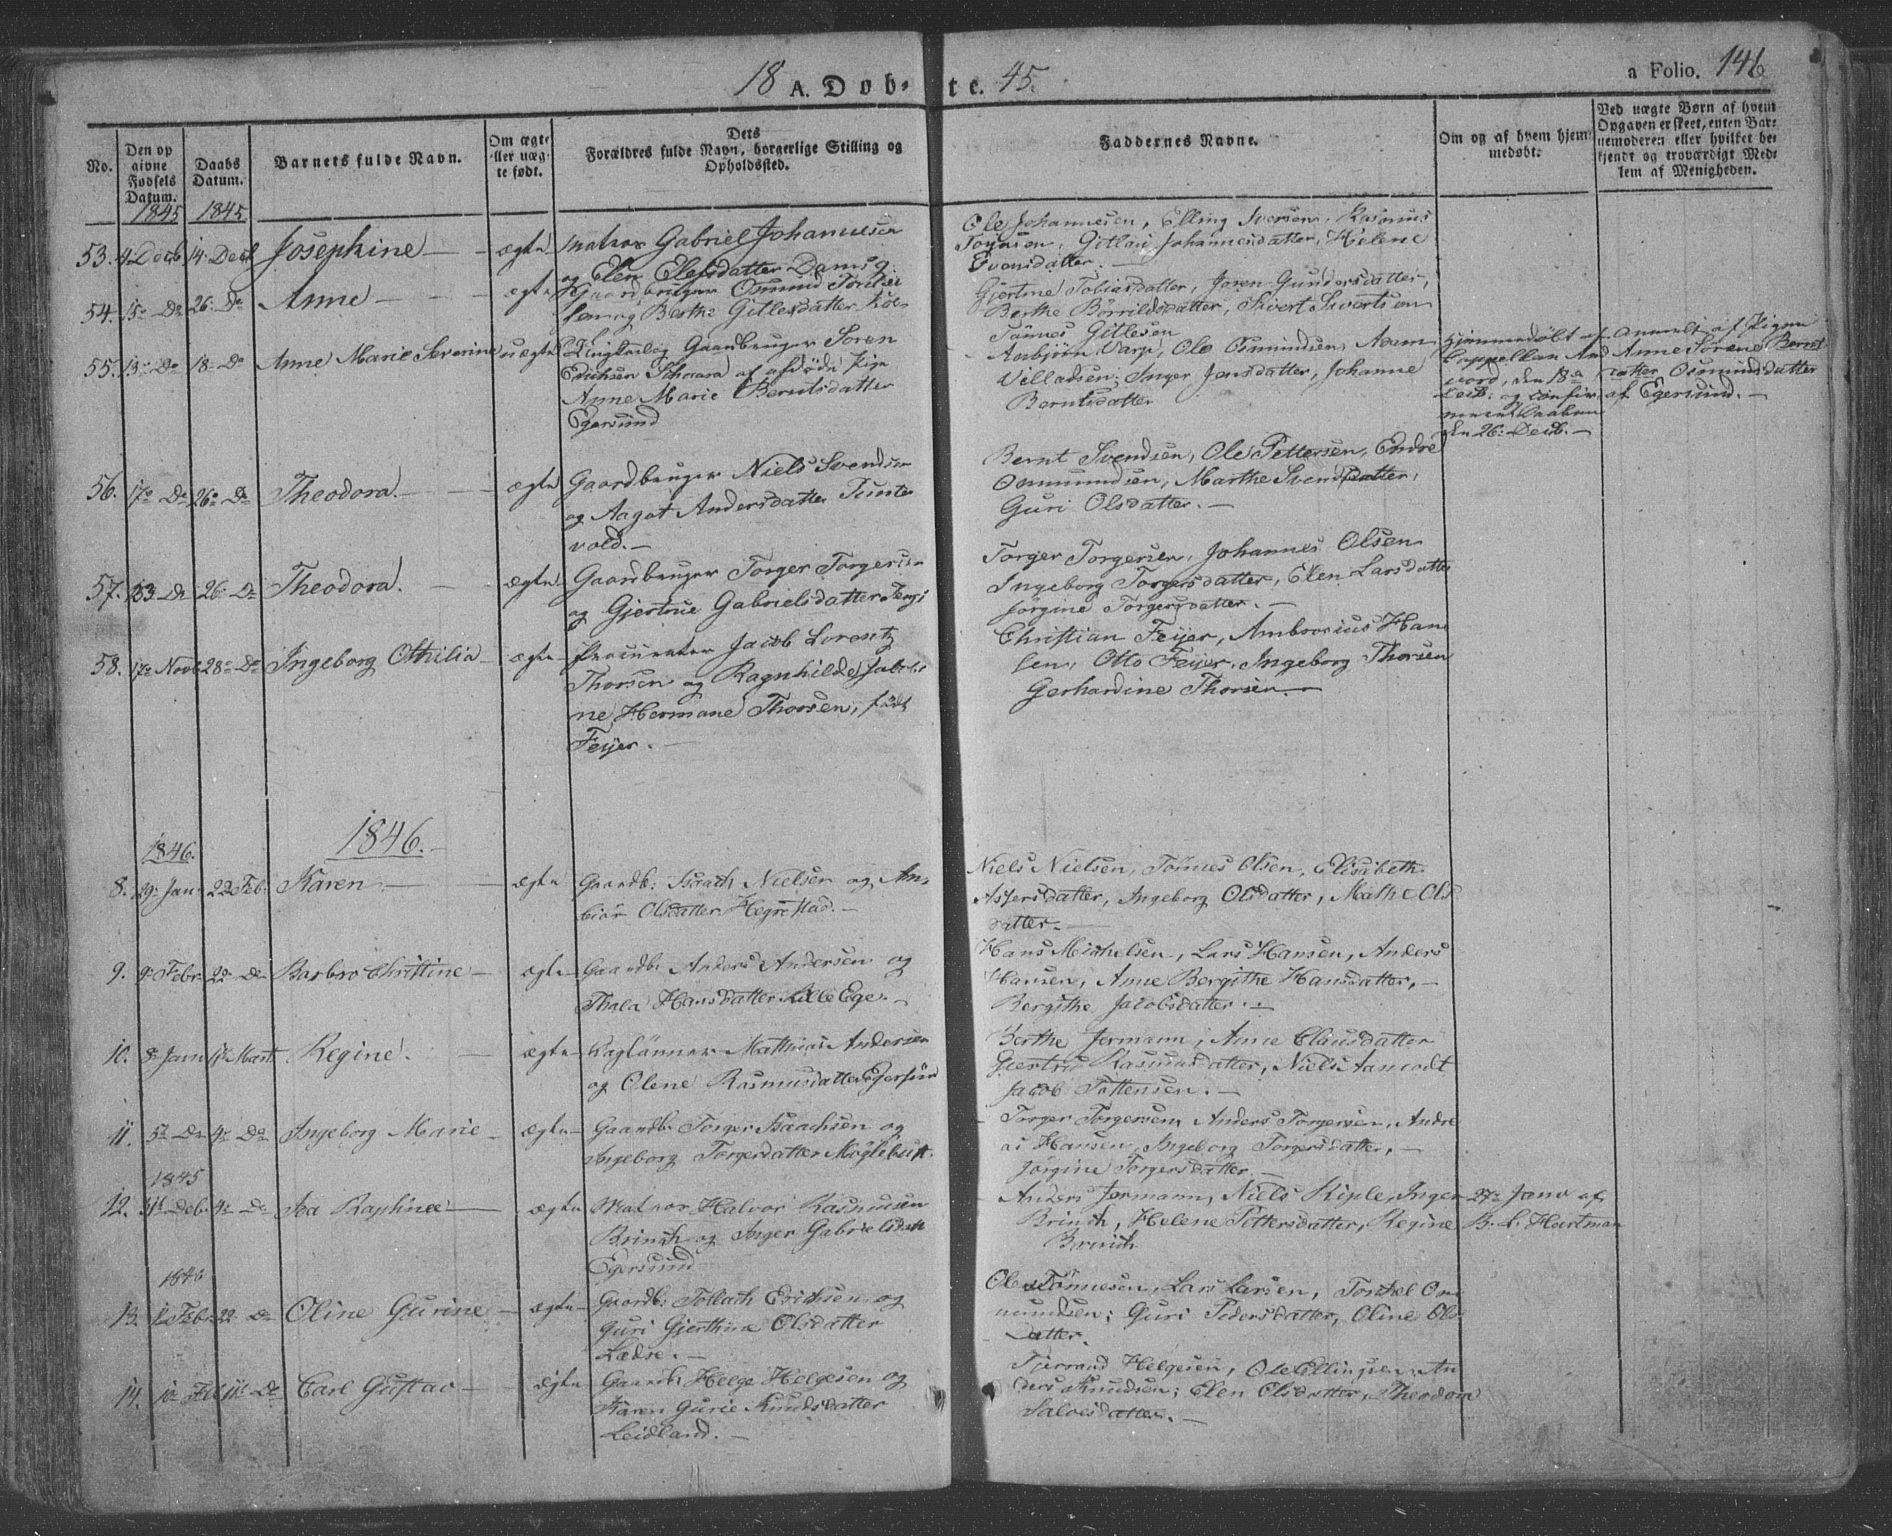 18 A. Døb-te. 45.
a Folio. 146
No.
Den op
givne
Fødsels
Datum.
1845
Daabs
Datum.
1845
Barnets fulde Navn.
Om ægte
eller uæg-
te født.
Dets
Forældres fulde Navn, borgerlige Stilling og
Opholdssted.
Faddernes Navne.
Om og af hvem hjem-
medøbt.
Ved uægte Børn af hvem
Opgaven er skeet, enten Bar-
nemoderen eller hvilket be-
kjendt og troværdigt Med-
lem af Menigheden.
53. 4 Decb 14 Decb Josephine — ægte Matros Gabriel Johannesen
og Elen Elesdatter
Ole Johannesen, Elling Iversen, Rasmus
Gitlau Johannesdatter, Helene
Svensdatter.
54. 15 Do 26 Do Anne — ægte Gaardbruger Osmund
sen og Berthe Gitlesdatter
Gjertine Tobiasdatter, Joren Gundersdatter,
Berthe Børrildsdatter, Sivert Sivertsen
Tønes Gitlesen
55. 13 Do 18 Do Anne Marie Severine uægte Gaardbruger Søren
Erichsen Schaara af afdøde Pige
Anne Marie Berntsdatter
Egersund
Asbjørn Varp, Ole Osmundsen, Adam
Villadsen; Inger Jensdatter, Johanne
Berntsdatter
Hjemmedøbt af
Cappellan
den 18de
Decb: og confir-
meret Daaben
den 26. Decb. —
Anmeldt af Pigen
Anne Sørene Bernt
datter Osmundsdatter
af Egersund. —
56. 17 Do 26 Do Theodora. — ægte Gaardbruger Niels Svendsen
og Aagot Andersdatter Tunte
vold. —
Bernt Svendsen, Ole Pettersen, Endre
Ommundsen, Marthe Svendsdatter,
Guri Olsdatter. —
57. Do 26 Do Theodora. — ægte Gaardbruger Torger Torgersen
og Gjertrue Gabrielsdatter Tengs
Torger Torgersen, Johannes Olsen
Ingeborg Torgersdatter, Elen Larsdatter
Jørgine Torgersdatter. —
58. 17 Nov 28 Do Ingeborg Othilia — ægte Procurator Jacob Lorentz
Thorsen og Ragnhilde
ne Hermane Thorsen, født
Feyer. —
Christian Feyer, Ambrosius Han
sen, Otto Feyer, Ingeborg Thorsen
Gerhardine Thorsen. —
1846. —
1846.
8. 29 Jan 22 Feb. Karen. — ægte Gaardb: Isaach Nielsen og An-
biør Olsdatter Hegrestad. —
Niels Nielsen, Tønnes Olsen, Elisabeth
Assersdatter, Ingeborg Olsdatter, Mathe Ols
datter. —
9. 9 Febr 22 Do Barbro Christine — ægte Gaardb: Anders Andersen og
Thala Hansdatter Lille Ege. —
Hans Michelsen, Lars Hansen, Anders
Hansen, Anne Bergithe Hansdatter, —
Bergithe Jacobsdatter. —
10. 8 Janu 1 Mart Regine. — ægte Daglønner Mathias Andersen
og Olene Rasmusdatter Egersund
Berthe Jermann, Anne Clausdatter
Gjertru Rasmusdatter, Niels Aanodt
Jacob Tollensen. —
11. 5 Do 4 Do Ingeborg Marie — ægte Gaardb: Torger Isaachsen og
Ingeborg Torgersdatter Møglebust.
Torger Torgersen, Anders Torgersen, Andre
as Hansen, Ingeborg Torgersdatter, —
Jørgine Torgersdatter —
1845
12. Deb. 4 Do Ida Raphine — ægte Matros Halvor Rasmusen
Brinch og Inger Gabrielsdatt
Egersund
Anders Jermann, Niels Kiple, Inger
Brinch, Helene Pettersdatter, Regine
Brinch
27 Janv af
B. C. Hartman
1846
13. 1 Febr 22 Do Oline Gurine — ægte Gaardb: Tollach Erichsen og
Guri Gjerthine Olsdatter
Lædre. —
Ole Tønnesen, Lars Larsen, Torkel Om
mundsen; Guri Pedersdatter, Oline Ols-
datter.
14. 10 Feb Do Carl Gustav — ægte Gaardb: Helge Helgesen og
Karen Gurie Knudsdatter
Leidland. —
Helgesen, Ole Ellingsen, An
ders Knudsen; Elen Olsdatter, Theodora
Salvesdatter. —